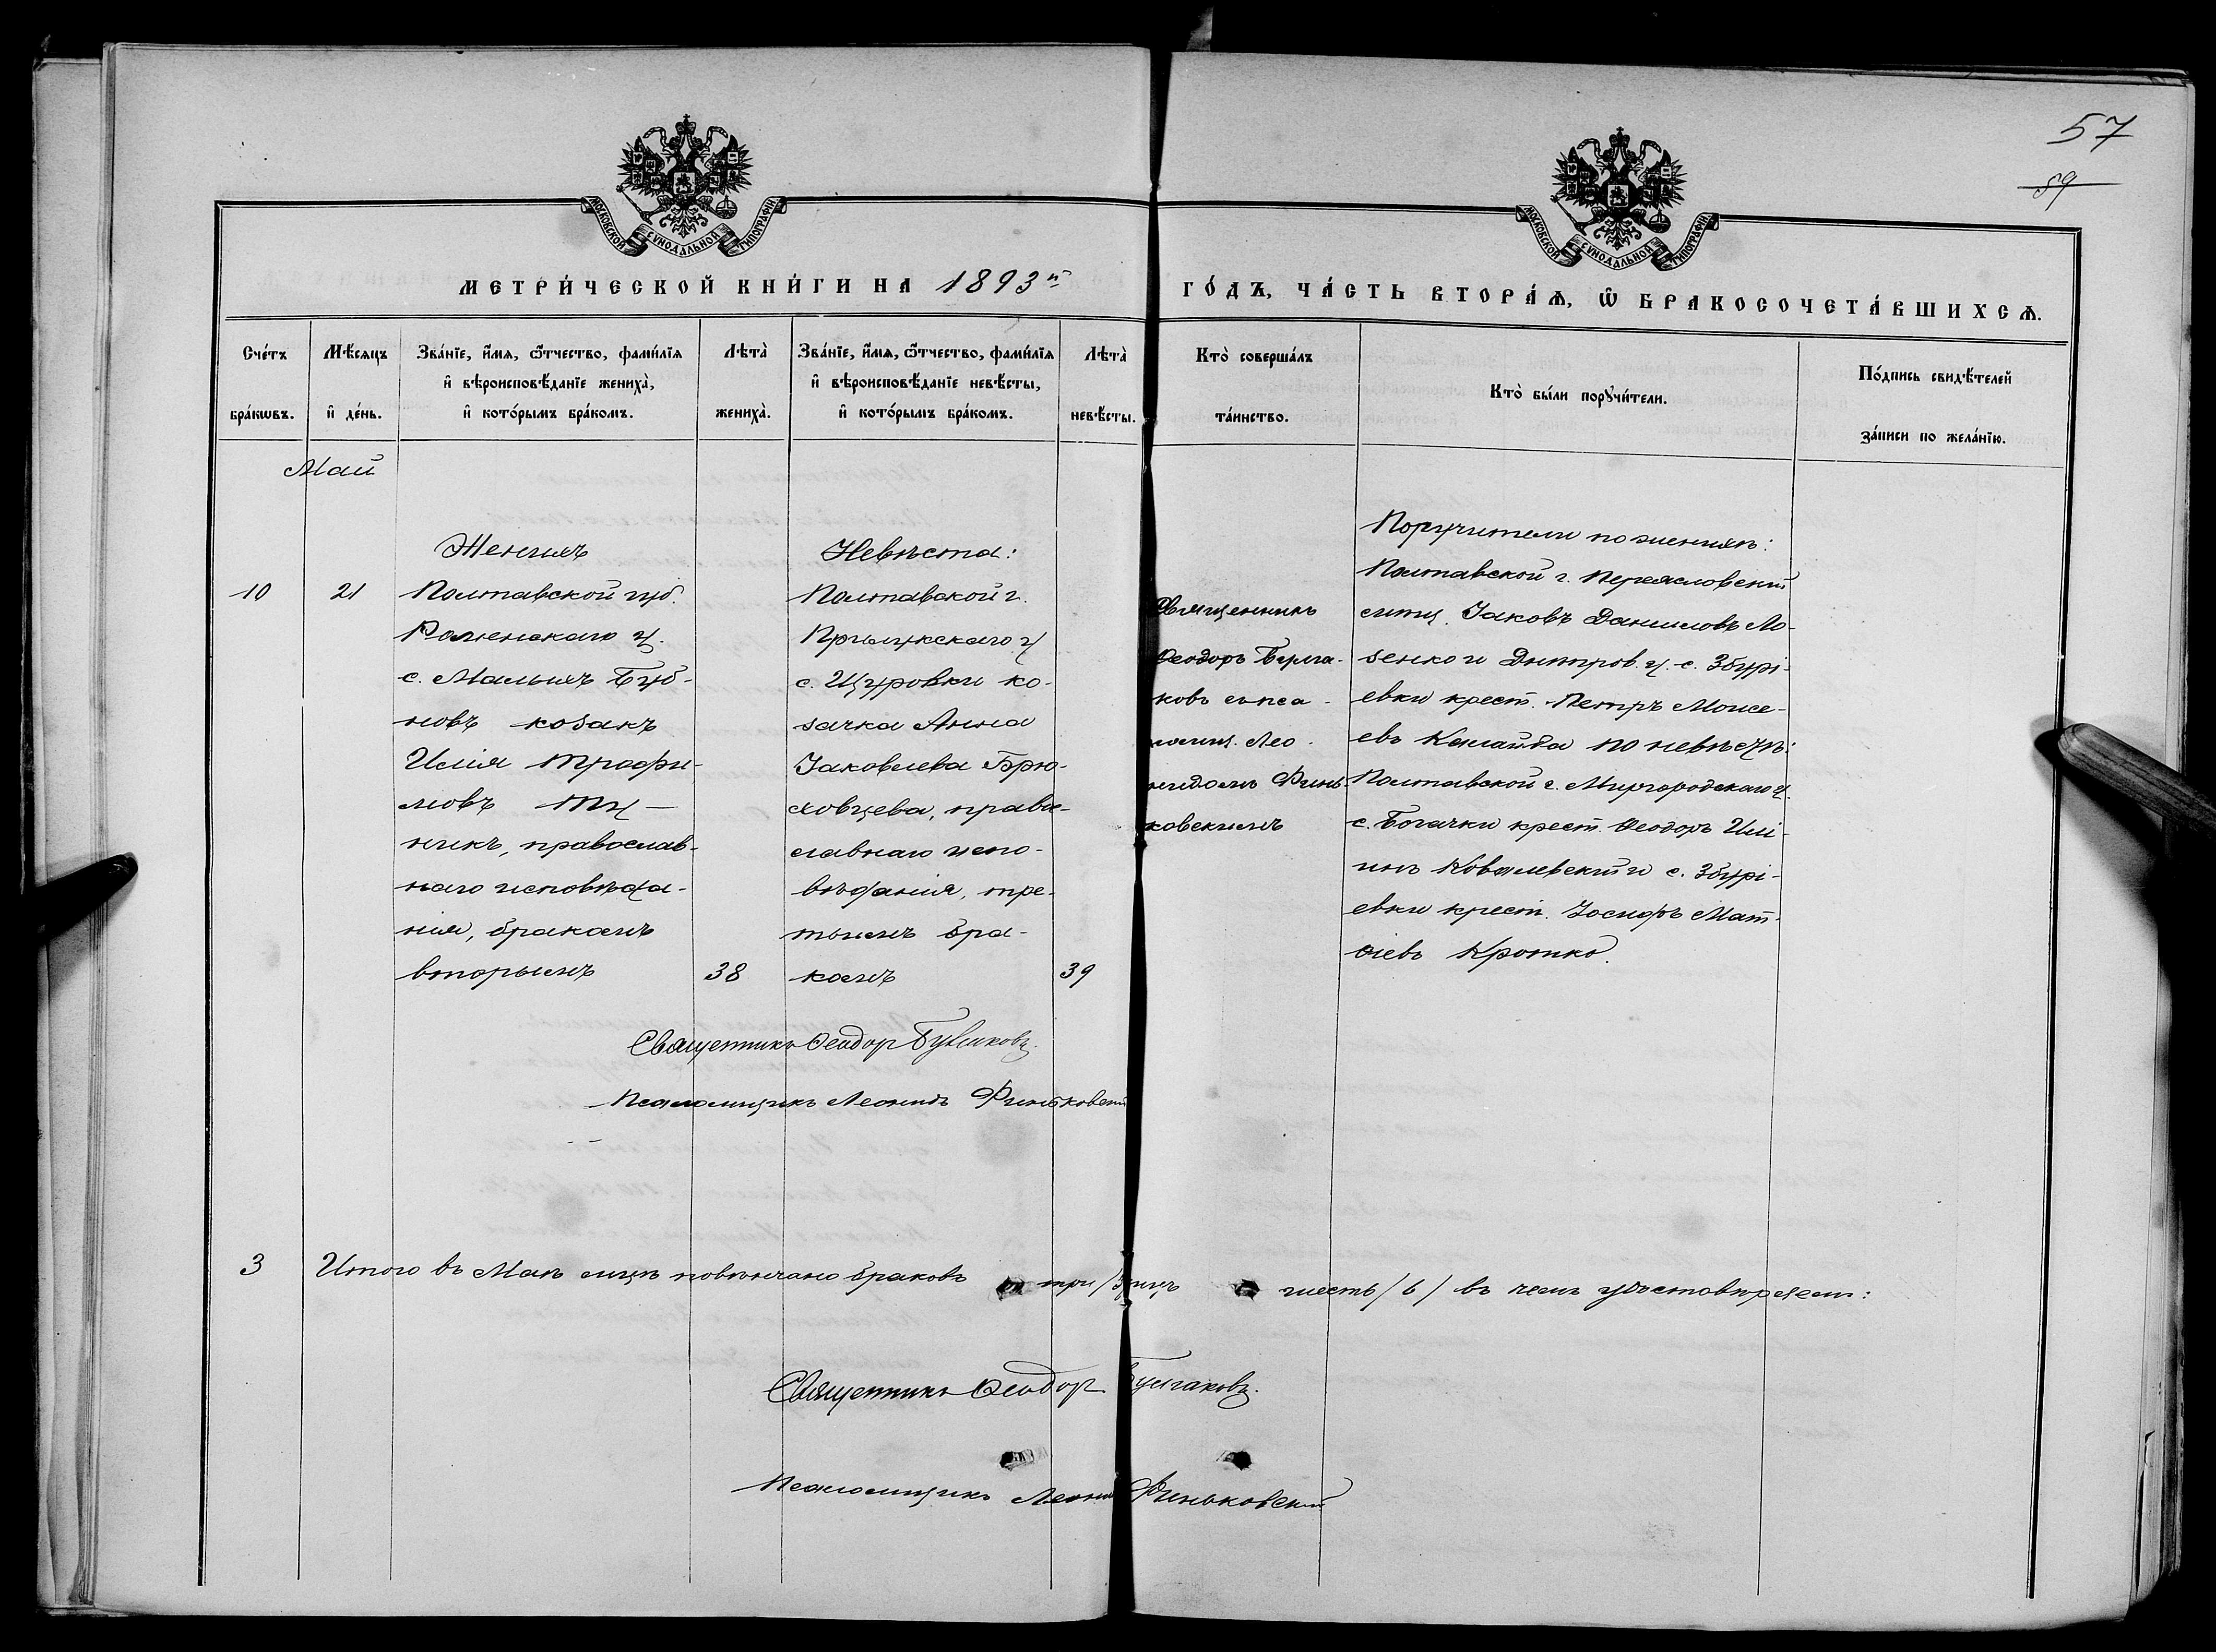 57
59
МОСКОВСКОЙ СѴНОДАЛЬНОЙ ТИПОГРАФІИ
МОСКОВСКОЙ СѴНОДАЛЬНОЙ ТИПОГРАФІИ
МЕТРИ́ЧЕСКОЙ КНИ́ГИ НА 1893й
ГО́ДЪ, ЧА́СТЬ ВТОРА́Ѧ, Ѿ БРАКОСОЧЕТА́ВШИХСѦ.
Сче́тъ бра́кѡвъ.
Мѣ́сяцъ и҆ де́нь.
Зва́нїе, и҆́мя, ѻ҆́тчество, фами́лїя и҆ вѣроисповѣ́данїе жениха̀, и҆ кото́рымъ бра́комъ.
Лѣта̀ жениха̀.
Зва́нїе, и҆́мя, ѻ҆́тчество, фами́лїя и҆ вѣроисповѣ́данїе невѣ́сты, и҆ кото́рымъ бра́комъ.
Лѣта̀ невѣ́сты.
Кто̀ соверша́лъ та́инство.
Кто̀ бы́ли порꙋчи́тели.
По́дпись свидѣ́телей за́писи по жела́нїю.
Май
10
21
Женихъ
Полтавской губ.
Роменскаго у.
с. Малыхъ Буб-
новъ козакъ
Илія Трофи-
мовъ
никъ, православ-
наго исповѣда-
нія, бракомъ
вторымъ
38
Невѣста:
Полтавской г.
Прилукскаго у
с. Щуровки ко-
зачка Анна
Іаковлева Брю-
ховцева, право-
славнаго испо-
вѣданія, тре-
тьимъ бра-
комъ
39
Священникъ
Ѳеодоръ Булга-
ковъ съ пса-
ломщ. Лео-
нидомъ Финь-
ковскимъ
Поручители по женихѣ:
Полтавской г. Переясловский
мѣщ. Іаковъ Даниловъ Ло-
зенко и Днѣпров. у. с. Збурі-
евки крест. Петръ Моисе-
евъ Каланда по невѣстѣ:
Полтавской г. Миргородскаго у.
с. Богачки крест. Ѳеодоръ Илі-
инъ Ковалевский и с. Збурі-
евки крест. Іосифъ Мат-
ѳіевъ Кротко.
Священникъ Ѳеодор Булгаковъ.
Псаломщикъ Леонидъ Финьковский
3
Итого въ Маѣ мцѣ повѣнчано браковъ три /3/ лицъ шесть /6/ въ чемъ удостовѣряемъ:
Священникъ Ѳеодор Булгаковъ.
Псаломщикъ Леонид Финьковский